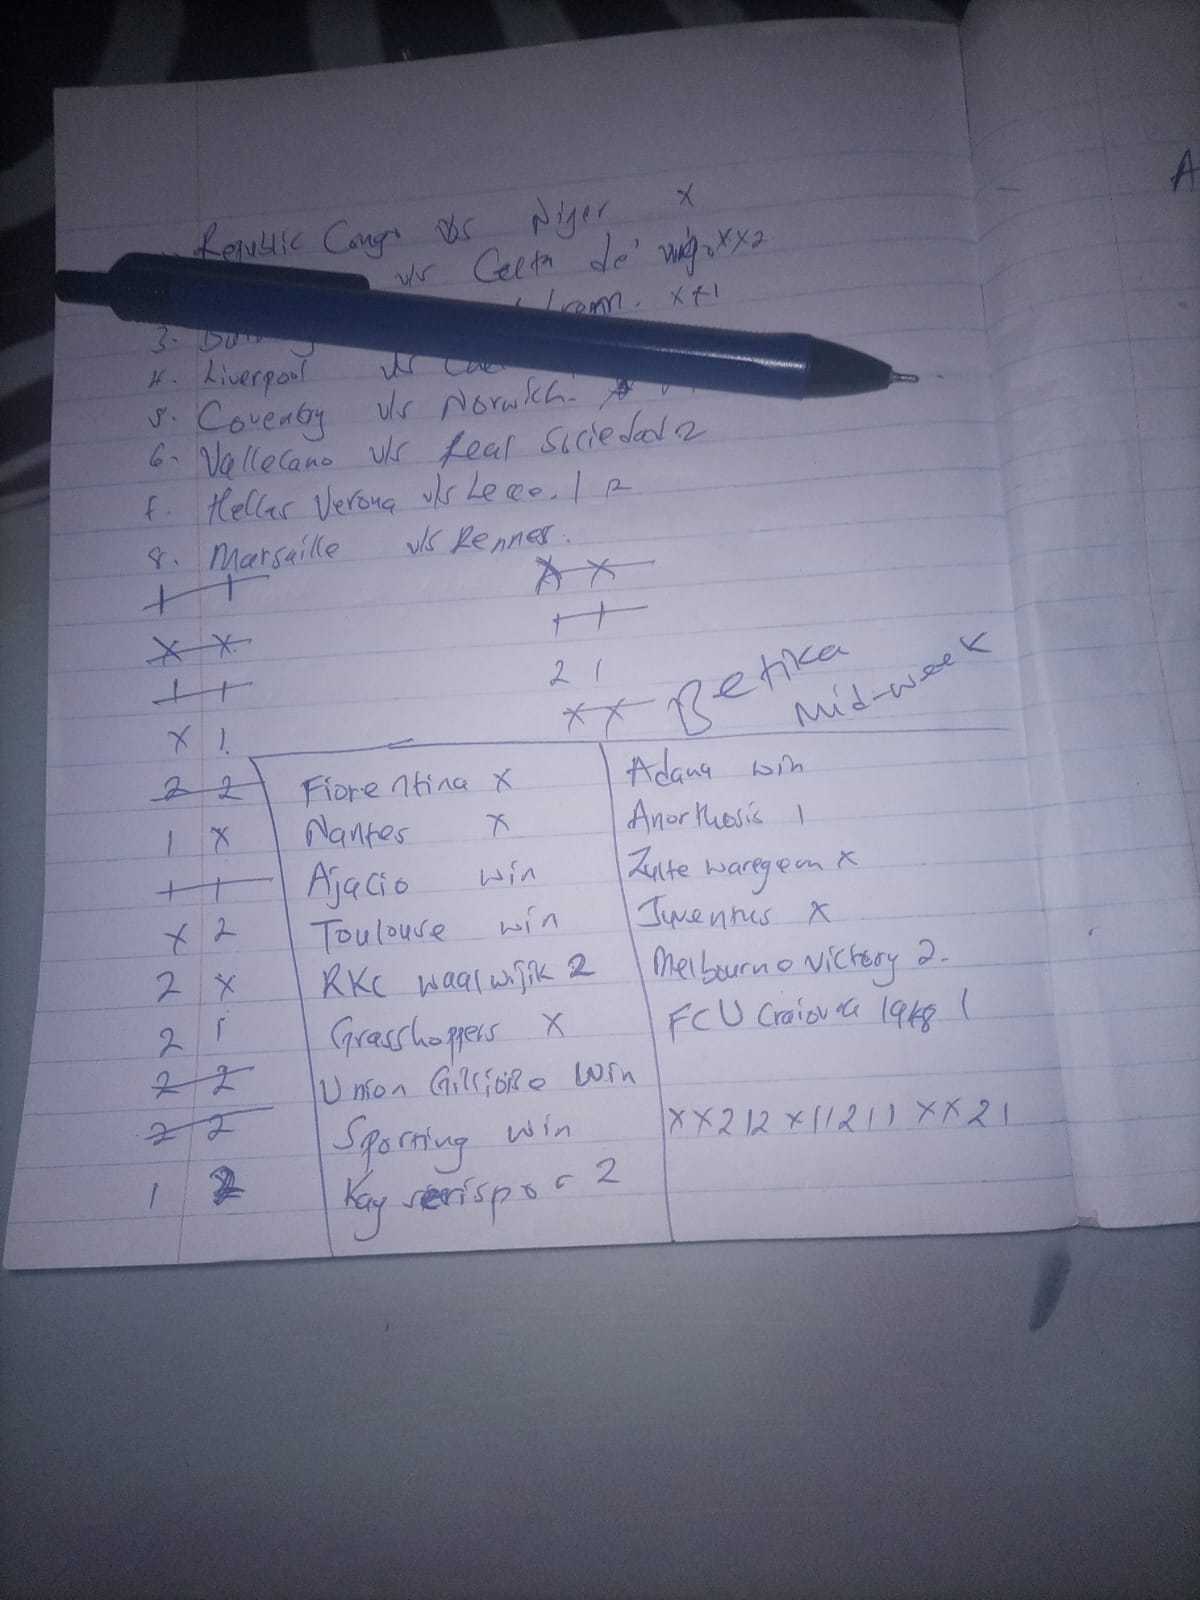 Republic Congo vs Niger X
v/s Celta de vigo XX2
X+1
3.
4. Liverpool v/s
5. Coventry v/s Norwich.
6- Vallecano v/s Real Sociedad 2
f. Hellas Verona v/s Lecce. 1 2
8. Marsaille v/s Rennes.
1 1
X X
X X
1 1
1 1
2 1
X X Betika
mid-week
X 1.
2 2
1 X
1 1
X 2
2 X
2 1
2 2
2 2
1 2
Fiorentina X
Nantes X
Ajacio win
Toulouse win
RKC waalwijik 2
Grasshoppers X
Union Gilliose win
Sporting win
Kayserispor 2
Adana win
Anorthosis 1
Zulte waregem X
Juventus X
Melbourne victory 2.
FCU Craiova 1948 1
XX212X11211XX21
A